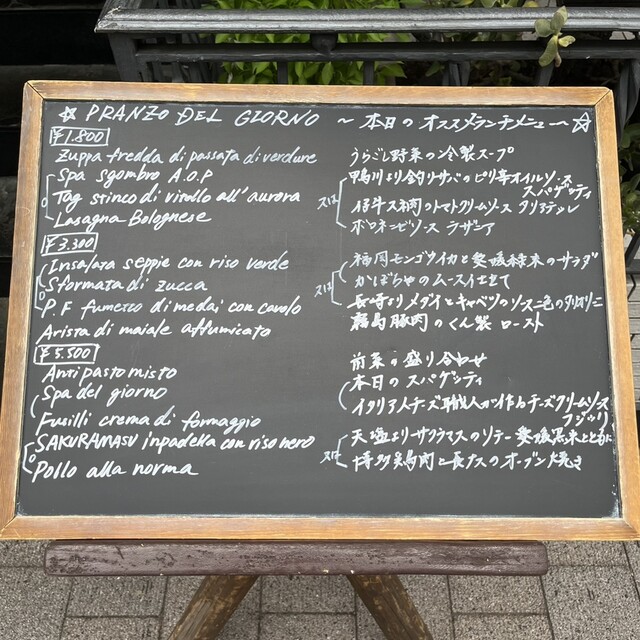 ☆ PRANZO DEL GIORNO ~ 本日のオススメランチメニュー ~☆
¥1.800
Zuppa fredda di passata di verdure うらごし野菜の冷製スープ
Spa sgombro A.O.P 鴨川より釣りサバのピリ辛オイルソース
スパゲッティ
o Tag stinco di vitello all'aurora 又は 仔牛スネ肉のトマトクリームソース タリアテッレ
Lasagna Bolognese ボロネーゼソース ラザニア
¥3.300
Insalata seppie con riso verde 福岡モンゴウイカと愛媛緑米のサラダ
o Sformata di zucca 又は かぼちゃのムース仕立て
P.F fumetto di medai con cavolo 長崎よりメダイとキャベツのソース 二色のタリオリーニ
Arista di maiale affumicato 霧島豚肉のくん製 ロースト
¥5.500
Antipasto misto 前菜の盛り合わせ
Spa del giorno 本日のスパゲッティ
Fusilli crema di formaggio イタリア人チーズ職人が作るチーズクリームソース
フジッリ
SAKURAMASU inpadella con riso nero 天塩よりサクラマスのソテー 愛媛黒米とともに
o Pollo alla norma 又は 博多鶏肉と長ナスのオーブン焼き